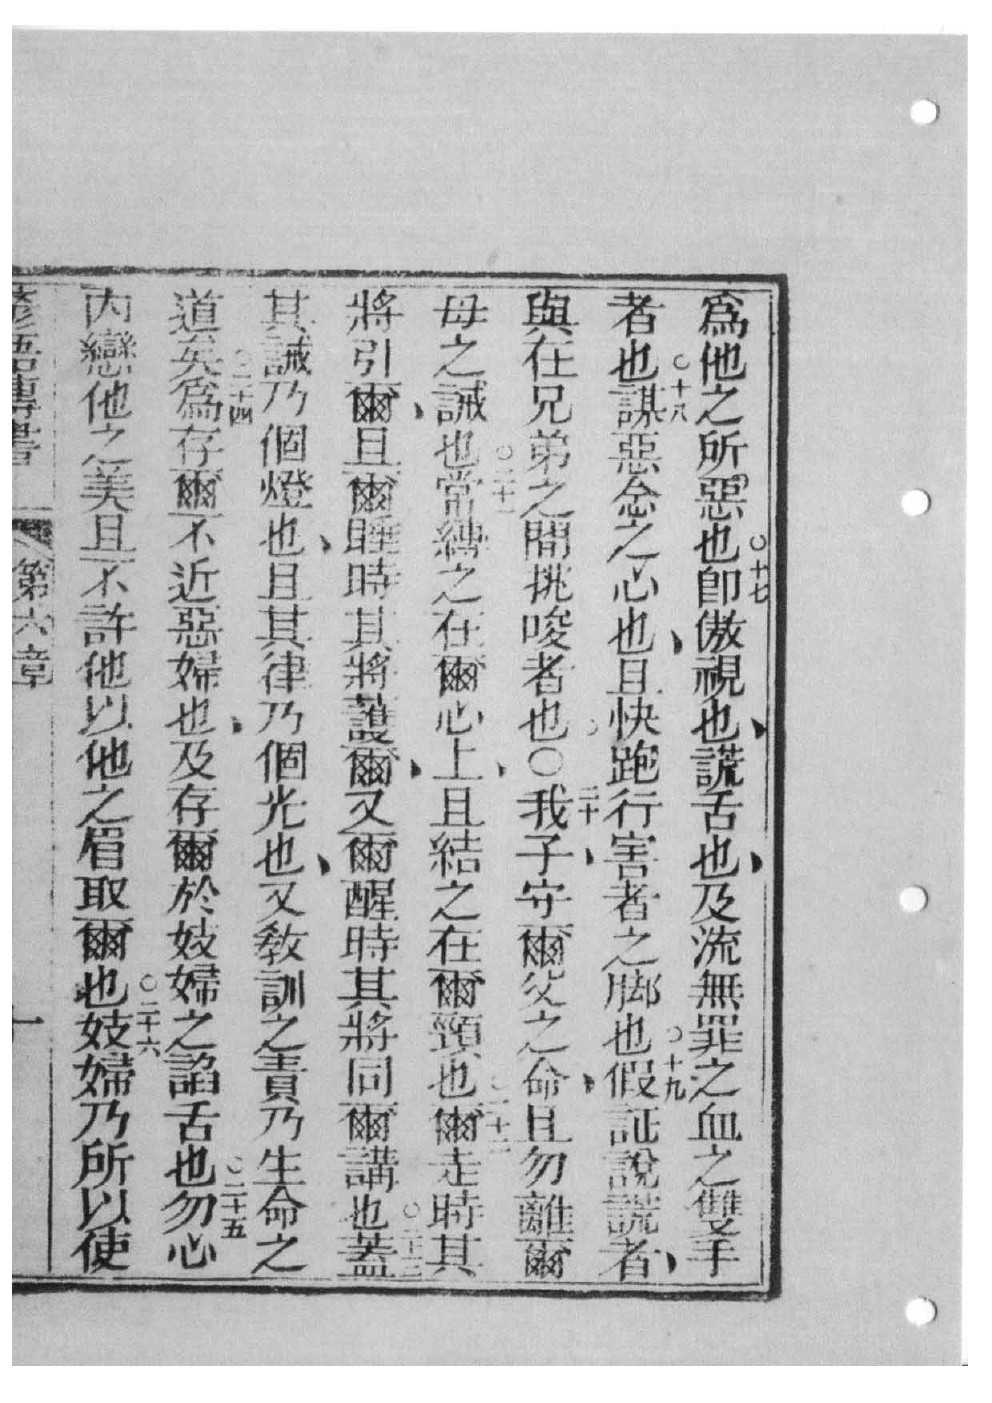 爲他之所惡也○十七卽傲視也、謊舌也、及流無罪之血之雙手
者也○十八謀惡念之心也、且快跑行害者之脚也○十九假証說謊者、
與在兄弟之間挑唆者也○○二十我子、守爾父之命、且勿離爾
母之誡也○二十一常縛之在爾心上、且結之在爾頸也○二十二爾走時其
將引爾、且爾睡時其將護爾、又爾醒時其將同爾講也○二十三蓋
其誡乃個燈也、且其律乃個光也、又教訓之責乃生命之
道矣○二十四爲存爾不近惡婦也、及存爾於妓婦之諂舌也○二十五勿心
內戀他之美且不許他以他之眉取爾也○二十六妓婦乃所以使
彥語傳書 第六章